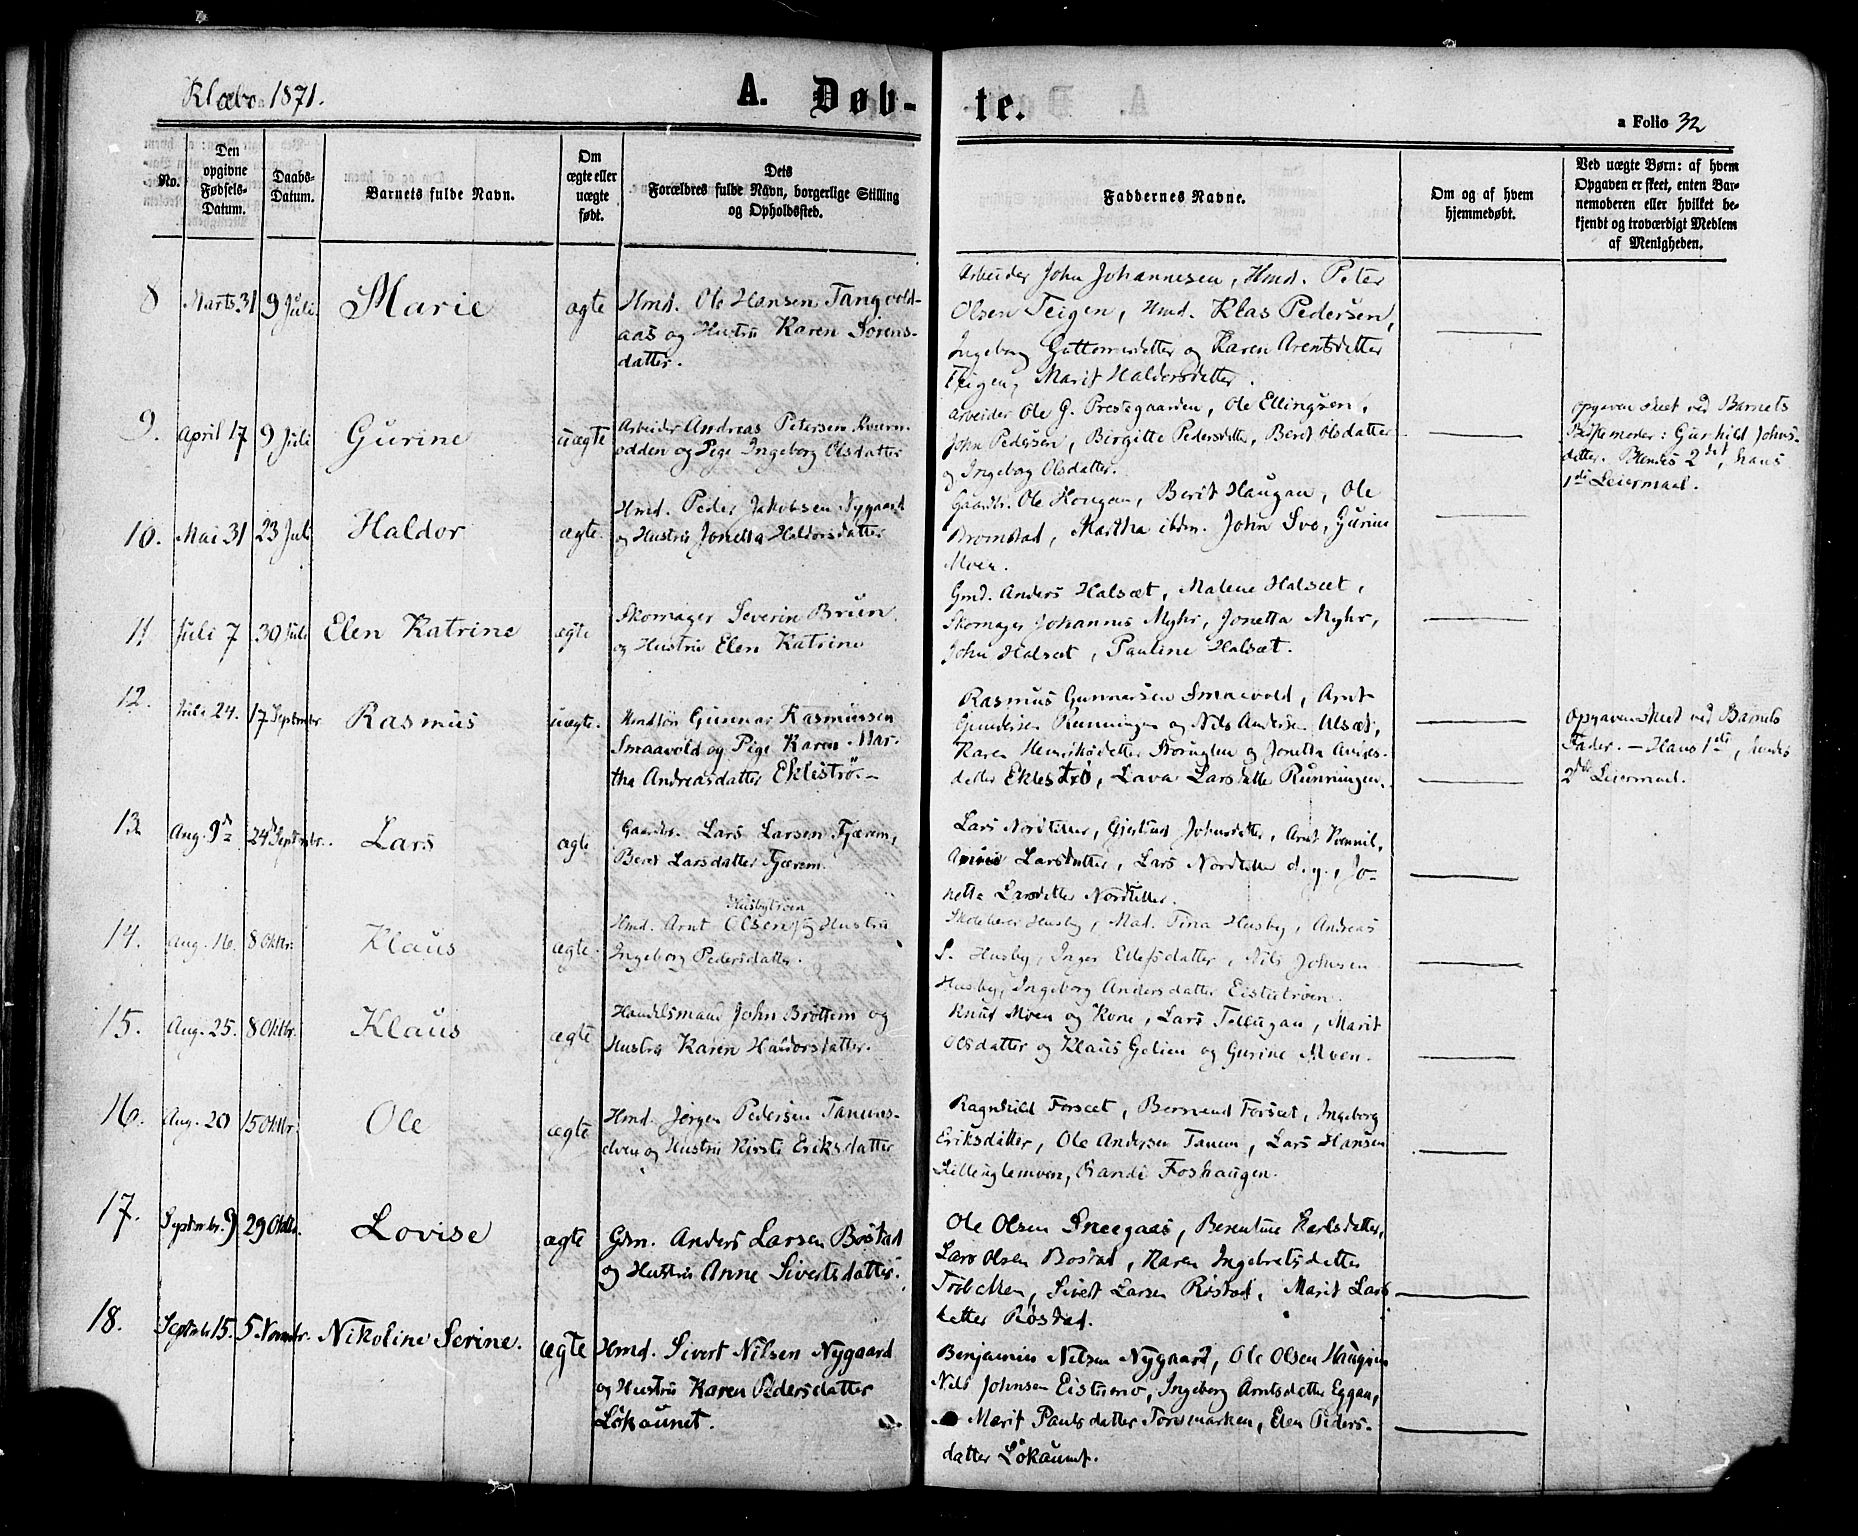 Klæbo 1871.
A. Døb-
te.
a Folio 32
No.
Den
opgivne
Fødsels-
Datum.
Daabs-
Datum.
Barnets fulde Navn.
Om
ægte eller
uægte
født.
Dets
Forældres fulde Navn, borgerlige Stilling
og Opholdssted.
Faddernes Navne.
Om og af hvem
hjemmedøbt.
Ved uægte Børn: af hvem
Opgaven er skeet, enten Bar-
nemoderen eller hvilket be-
kjendt og troværdigt Medlem
af Menigheden.
8 Marts 31 9 Juli Marie ægte
Hmd. Ole Hansen Tangvold-
aas og Hustru Karen Sørens-
datter.
Arbeider John Johannesen, Hmd. Peter
Olsen Teigen, Hmd. Klas Pedersen,
Ingeborg Guttormsdatter og Karen Arentsdatter
Teigen, Marit Haldorsdatter.
9. April 17 9 Juli Gurine uægte
Arbeider Andreas Petersen Kvern-
odden og Pige Ingeborg Olsdatter
Arbeider Ole G. Prestegaarden, Ole Ellingsen,
John Pedersen, Birgitte Pedersdatter, Berit Olsdatter
og Ingeborg Olsdatter.
Opgaven skeet ved Barnets
Bestemoder: Gurhild Johns-
datter. 2det, hans
1ste Leiermaal.
10. Mai 31 23 Juli Haldor ægte.
Hmd. Peder Jakobsen Nygaard
og Hustru Jonetta Haldorsdatter
Gaardbr. Ole Haugan, Berit Haugan, Ole
Bromstad, Martha ibdm. John Svo, Gurine
Moen.
11 Juli 7 30 Juli Elen Katrine ægte
Skomager Severin Brun
og Hustru Elen Katrine
Gmd. Anders Halsæt, Malene Halsæt,
Skomager Johannes Myhr, Jonetta Myhr,
John Halsæt, Pauline Halsæt.
12. Juli 24. 17 Septembr. Rasmus uægte.
Gunnar Rasmussen
Smaavold og Pige Karen Mar-
tha Andreasdatter Eklestrø.
Rasmus Gunnarsen Smaavold, Arnt
Gundersen Rønningen og Nils Andersen Ulsæt,
Karen Henriksdatter Storuglen og Jonetta Andreas-
datter Eklestrø, Lava Larsdatter Rønningen.
Opgaven skeet ved Barnets
Fader. – Hans 1ste, hendes
2det Leiermaal.
13. Aug. 9de 24de Septembr. Lars ægte
Gaardbr. Lars Larsen Fjærem,
Berit Larsdatter Fjærem.
Lars Nordtiller, Gjertrud Johnsdatter, Arnt Kvennil,
Larsdatter, Lars Nordtiller d. y., Jo-
netta Larsdatter Nordtiller.
14. Aug. 16. 8 Oktbr. Klaus ægte.
Husbytrøen
Hmd. Arnt Olsen og Hustru
Ingeborg Pedersdatter.
Skolelærer Husby, Mad. Tina Husby, Andreas
S. Husby, Inger Ellefsdatter, Nils Johnsen
Husby, Ingeborg Andersdatter Eistutrøen.
15. Aug. 25. 8 Oktbr. Klaus ægte
Handelsmand John Brøttem og
Hustru Karen Haldorsdatter.
Knud Moen og Kone, Lars Tellugan, Marit
Olsdatter og Klaus Gelien og Gurine Moen.
16. Aug. 20 15 Oktbr. Ole ægte
Hmd. Jørgen Pedersen Tanems-
elven og Hustru Kirsti Eriksdatter
Ragnhild Forseet, Berneud Forseet, Ingeborg
Eriksdatter, Ole Andersen Tanem, Lars Hansen
Lilleuglemoen, Randi Foshaugen.
17. Septembr. 9 29 Oktbr. Lovise ægte
Gdm. Anders Larsen Bøstad
og Hustru Anne Sivertsdatter.
Ole Olsen Sneegaas, Berentine Karlsdatter,
Lars Olsen Bostad, Karen Ingebretsdatter
Sivert Larsen Røstad, Marit Lars-
datter Røstad.
18. Septembr 15. 5. Novembr. Nikoline Serine. ægte
Hmd. Sivert Nilsen Nygaard
og Hustru Karen Pedersdatter
Løkaunet.
Benjamin Nilsen Nygaard, Ole Olsen Haugen
Nils Johnsen Eistumo, Ingeborg Arntsdatter Eggan,
Marit Paulsdatter Tormarken, Elen Peders-
datter Løkaunet.